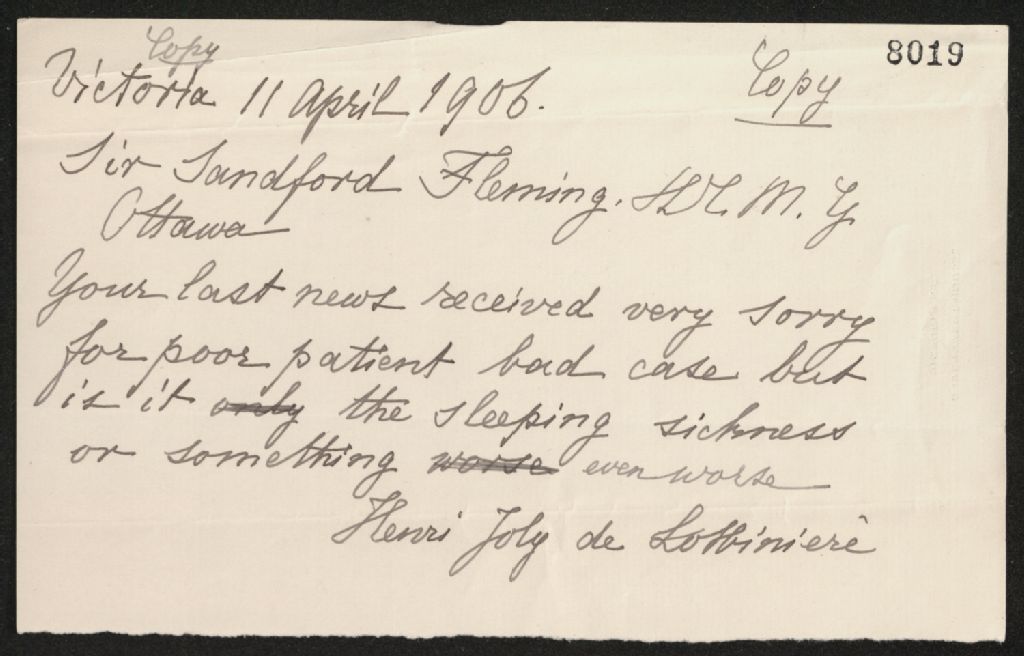 Copy
8019
Victoria 11 April 1906. Copy
Sir Sandford Fleming. M. Y
Ottawa
Your last news received very sorry
for poor patient bad case but
is it only the sleeping sickness
or something worse even worse
Henri Joly de Lotbinierè